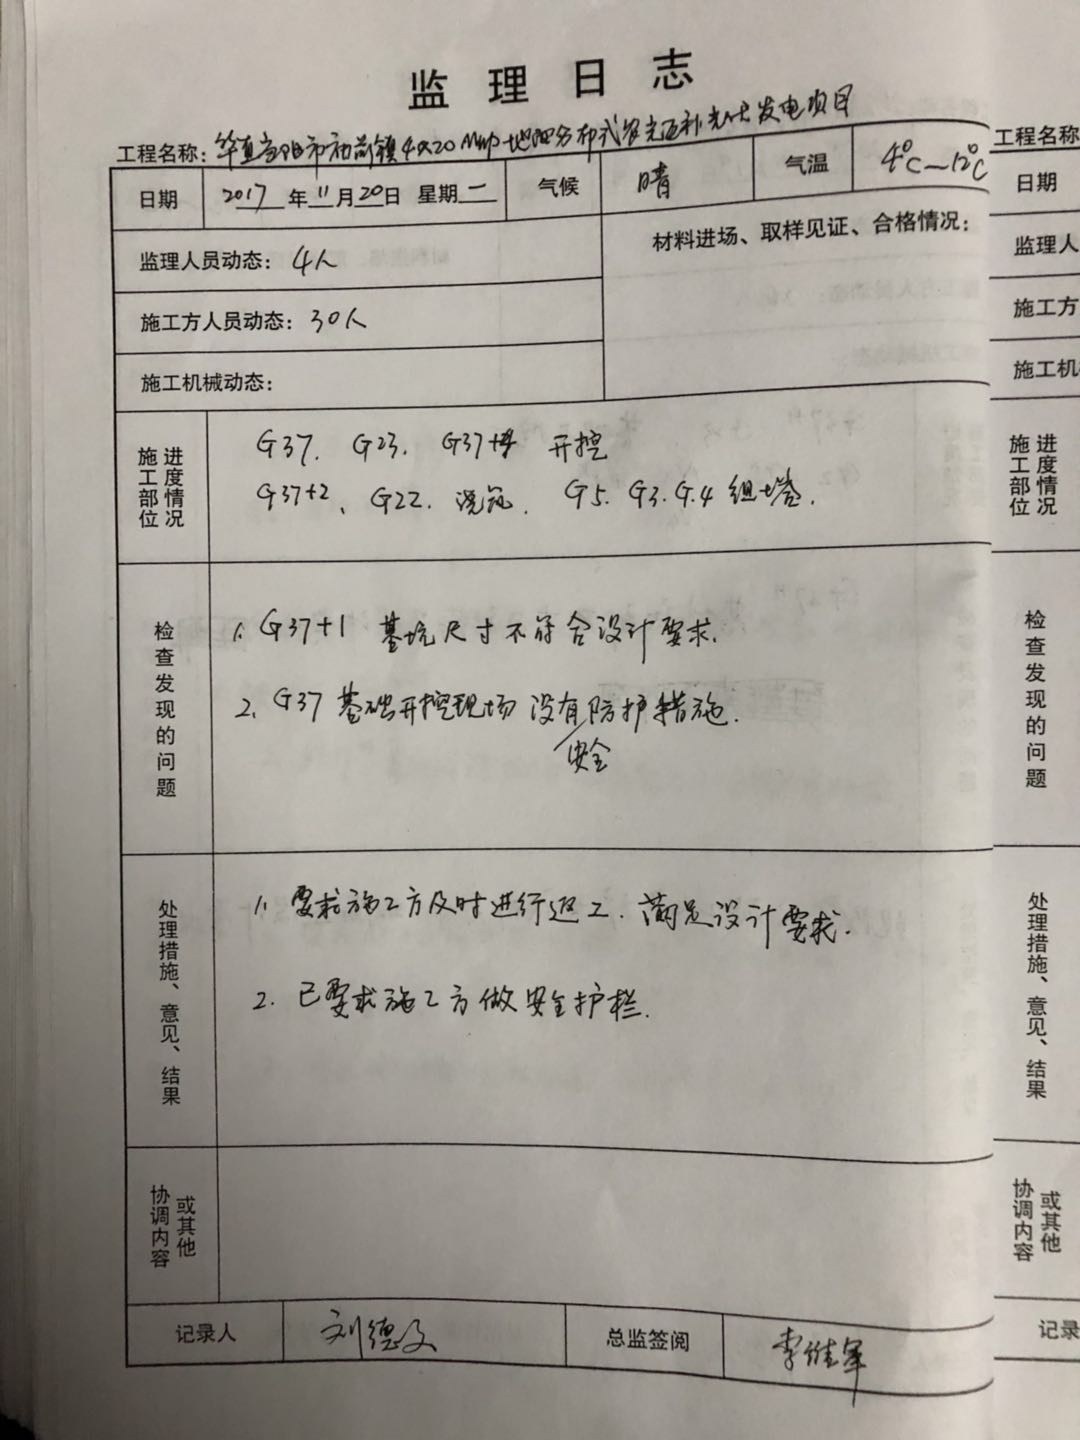 监理日志
工程名称: 市 镇4X20MWp 地面分布式农光互补光伏发电项目
日期 2017年11月20日 星期二 气候 晴 气温 4℃—12℃
监理人员动态: 4人
材料进场、取样见证、合格情况:
施工方人员动态: 30人
施工机械动态:
施工部位 进度情况
G37. G23. G37+ 开挖
G37+2、G22. 浇筑. G5. G3. G.4 组塔.
检查发现的问题
1. G37+1 基坑尺寸不符合设计要求.
2. G37 基础开挖现场没有安全防护措施.
处理措施、意见、结果
1. 要求施工方及时进行返工. 满足设计要求.
2. 已要求施工方做安全护栏.
协调内容 或其他
记录人 刘德文 总监签阅 李
工程名称
日期
监理人
施工方
施工机
施工部位 进度情况
检查发现的问题
处理措施、意见、结果
协调内容 或其他
记录